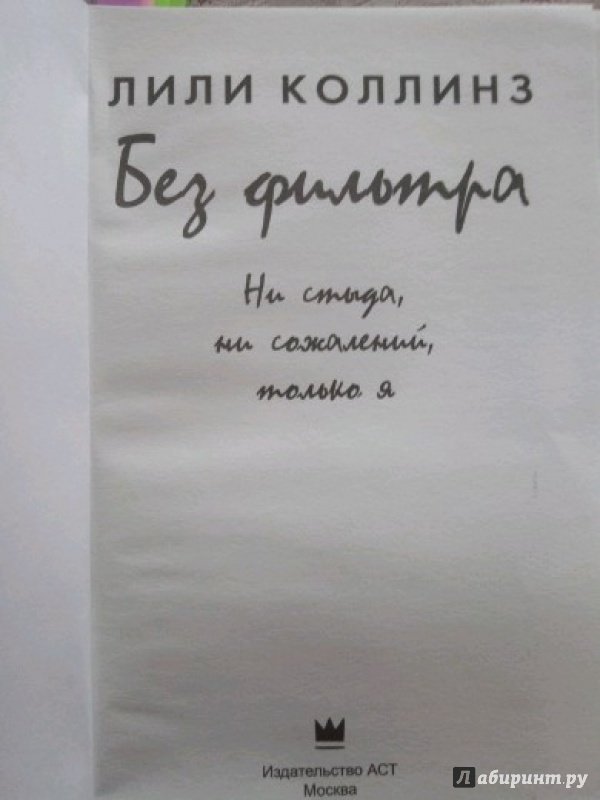 ЛИЛИ КОЛЛИНЗ
Без фильтра
Ни стыда,
ни сожалений,
только я
Издательство АСТ
Москва
Лабиринт.ру